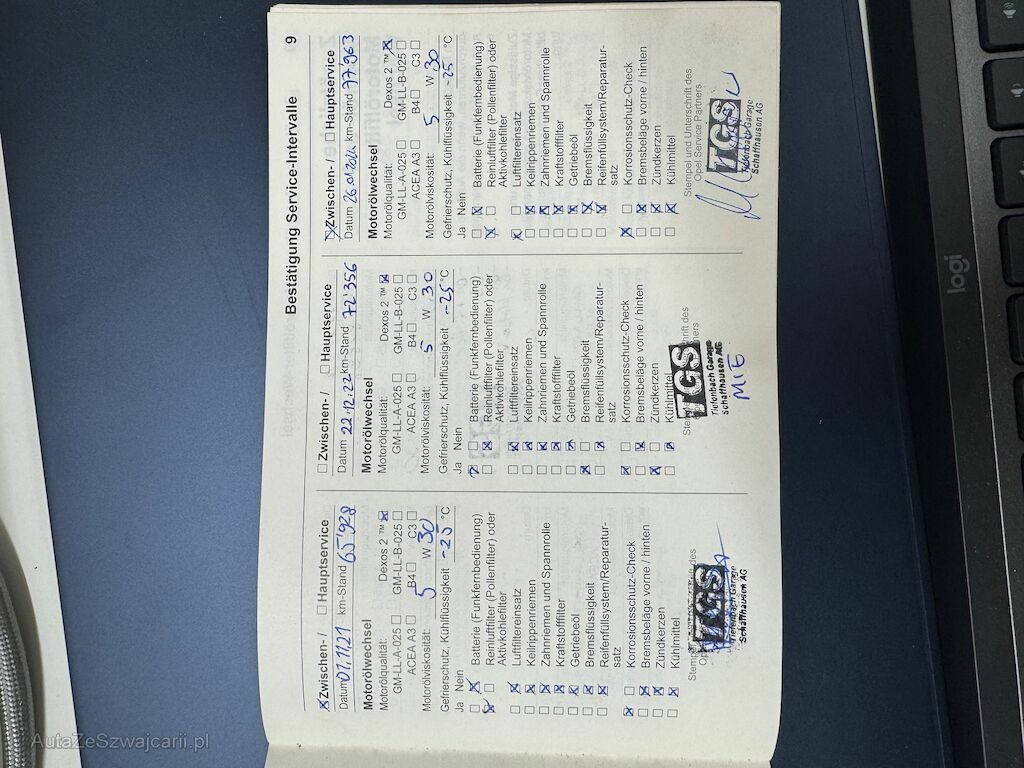 Bestätigung Service-Intervalle 9
☒ Zwischen- / ☐ Hauptservice
Datum 01.11.21 km-Stand 65'928
Motorölwechsel
Motorölqualität: Dexos 2 ™ ☒
GM-LL-A-025 ☐ GM-LL-B-025 ☐
ACEA A3 ☐ B4 ☐ C3 ☐
Motorölviskosität: 5 W 30
Gefrierschutz, Kühlflüssigkeit -25 °C
Ja Nein
☐ ☒ Batterie (Funkfernbedienung)
☒ ☐ Reinluftfilter (Pollenfilter) oder
Aktivkohlefilter
☐ ☒ Luftfiltereinsatz
☐ ☒ Keilrippenriemen
☐ ☒ Zahnriemen und Spannrolle
☐ ☒ Kraftstofffilter
☐ ☒ Getriebeöl
☐ ☒ Bremsflüssigkeit
☐ ☒ Reifenfüllsystem/Reparatur-
satz
☒ ☐ Korrosionsschutz-Check
☐ ☒ Bremsbeläge vorne / hinten
☐ ☒ Zündkerzen
☐ ☒ Kühlmittel
TGS
Tiefenbach Garage
Schaffhausen AG
☐ Zwischen- / ☐ Hauptservice
Datum 22.12.22 km-Stand 72'356
Motorölwechsel
Motorölqualität: Dexos 2 ™ ☒
GM-LL-A-025 ☐ GM-LL-B-025 ☐
ACEA A3 ☐ B4 ☐ C3 ☐
Motorölviskosität: 5 W 30
Gefrierschutz, Kühlflüssigkeit -25 °C
Ja Nein
Batterie (Funkfernbedienung)
☐ ☒ Reinluftfilter (Pollenfilter) oder
Aktivkohlefilter
☐ ☒ Luftfiltereinsatz
☐ ☒ Keilrippenriemen
☐ ☒ Zahnriemen und Spannrolle
☐ ☒ Kraftstofffilter
☐ ☒ Getriebeöl
☒ ☐ Bremsflüssigkeit
☐ ☒ Reifenfüllsystem/Reparatur-
satz
☒ ☐ Korrosionsschutz-Check
☐ ☒ Bremsbeläge vorne / hinten
☒ ☐ Zündkerzen
☐ ☒ Kühlmittel
TGS
Tiefenbach Garage
Schaffhausen AG
MIE
☒ Zwischen- / ☐ Hauptservice
Datum 26.01.2024 km-Stand 77'963
Motorölwechsel
Motorölqualität: Dexos 2 ™ ☒
GM-LL-A-025 ☐ GM-LL-B-025 ☐
ACEA A3 ☐ B4 ☐ C3 ☐
Motorölviskosität: 5 W 30
Gefrierschutz, Kühlflüssigkeit -25 °C
Ja Nein
☐ ☒ Batterie (Funkfernbedienung)
☒ ☐ Reinluftfilter (Pollenfilter) oder
Aktivkohlefilter
☒ ☐ Luftfiltereinsatz
☐ ☒ Keilrippenriemen
☐ ☒ Zahnriemen und Spannrolle
☐ ☒ Kraftstofffilter
☐ ☒ Getriebeöl
☐ ☒ Bremsflüssigkeit
☐ ☒ Reifenfüllsystem/Reparatur-
satz
☒ ☐ Korrosionsschutz-Check
☐ ☒ Bremsbeläge vorne / hinten
☐ ☒ Zündkerzen
☐ ☒ Kühlmittel
Stempel und Unterschrift des
Opel Service Partners
TGS
Tiefenbach Garage
Schaffhausen AG
logi
AutaZeSzwajcarii.pl